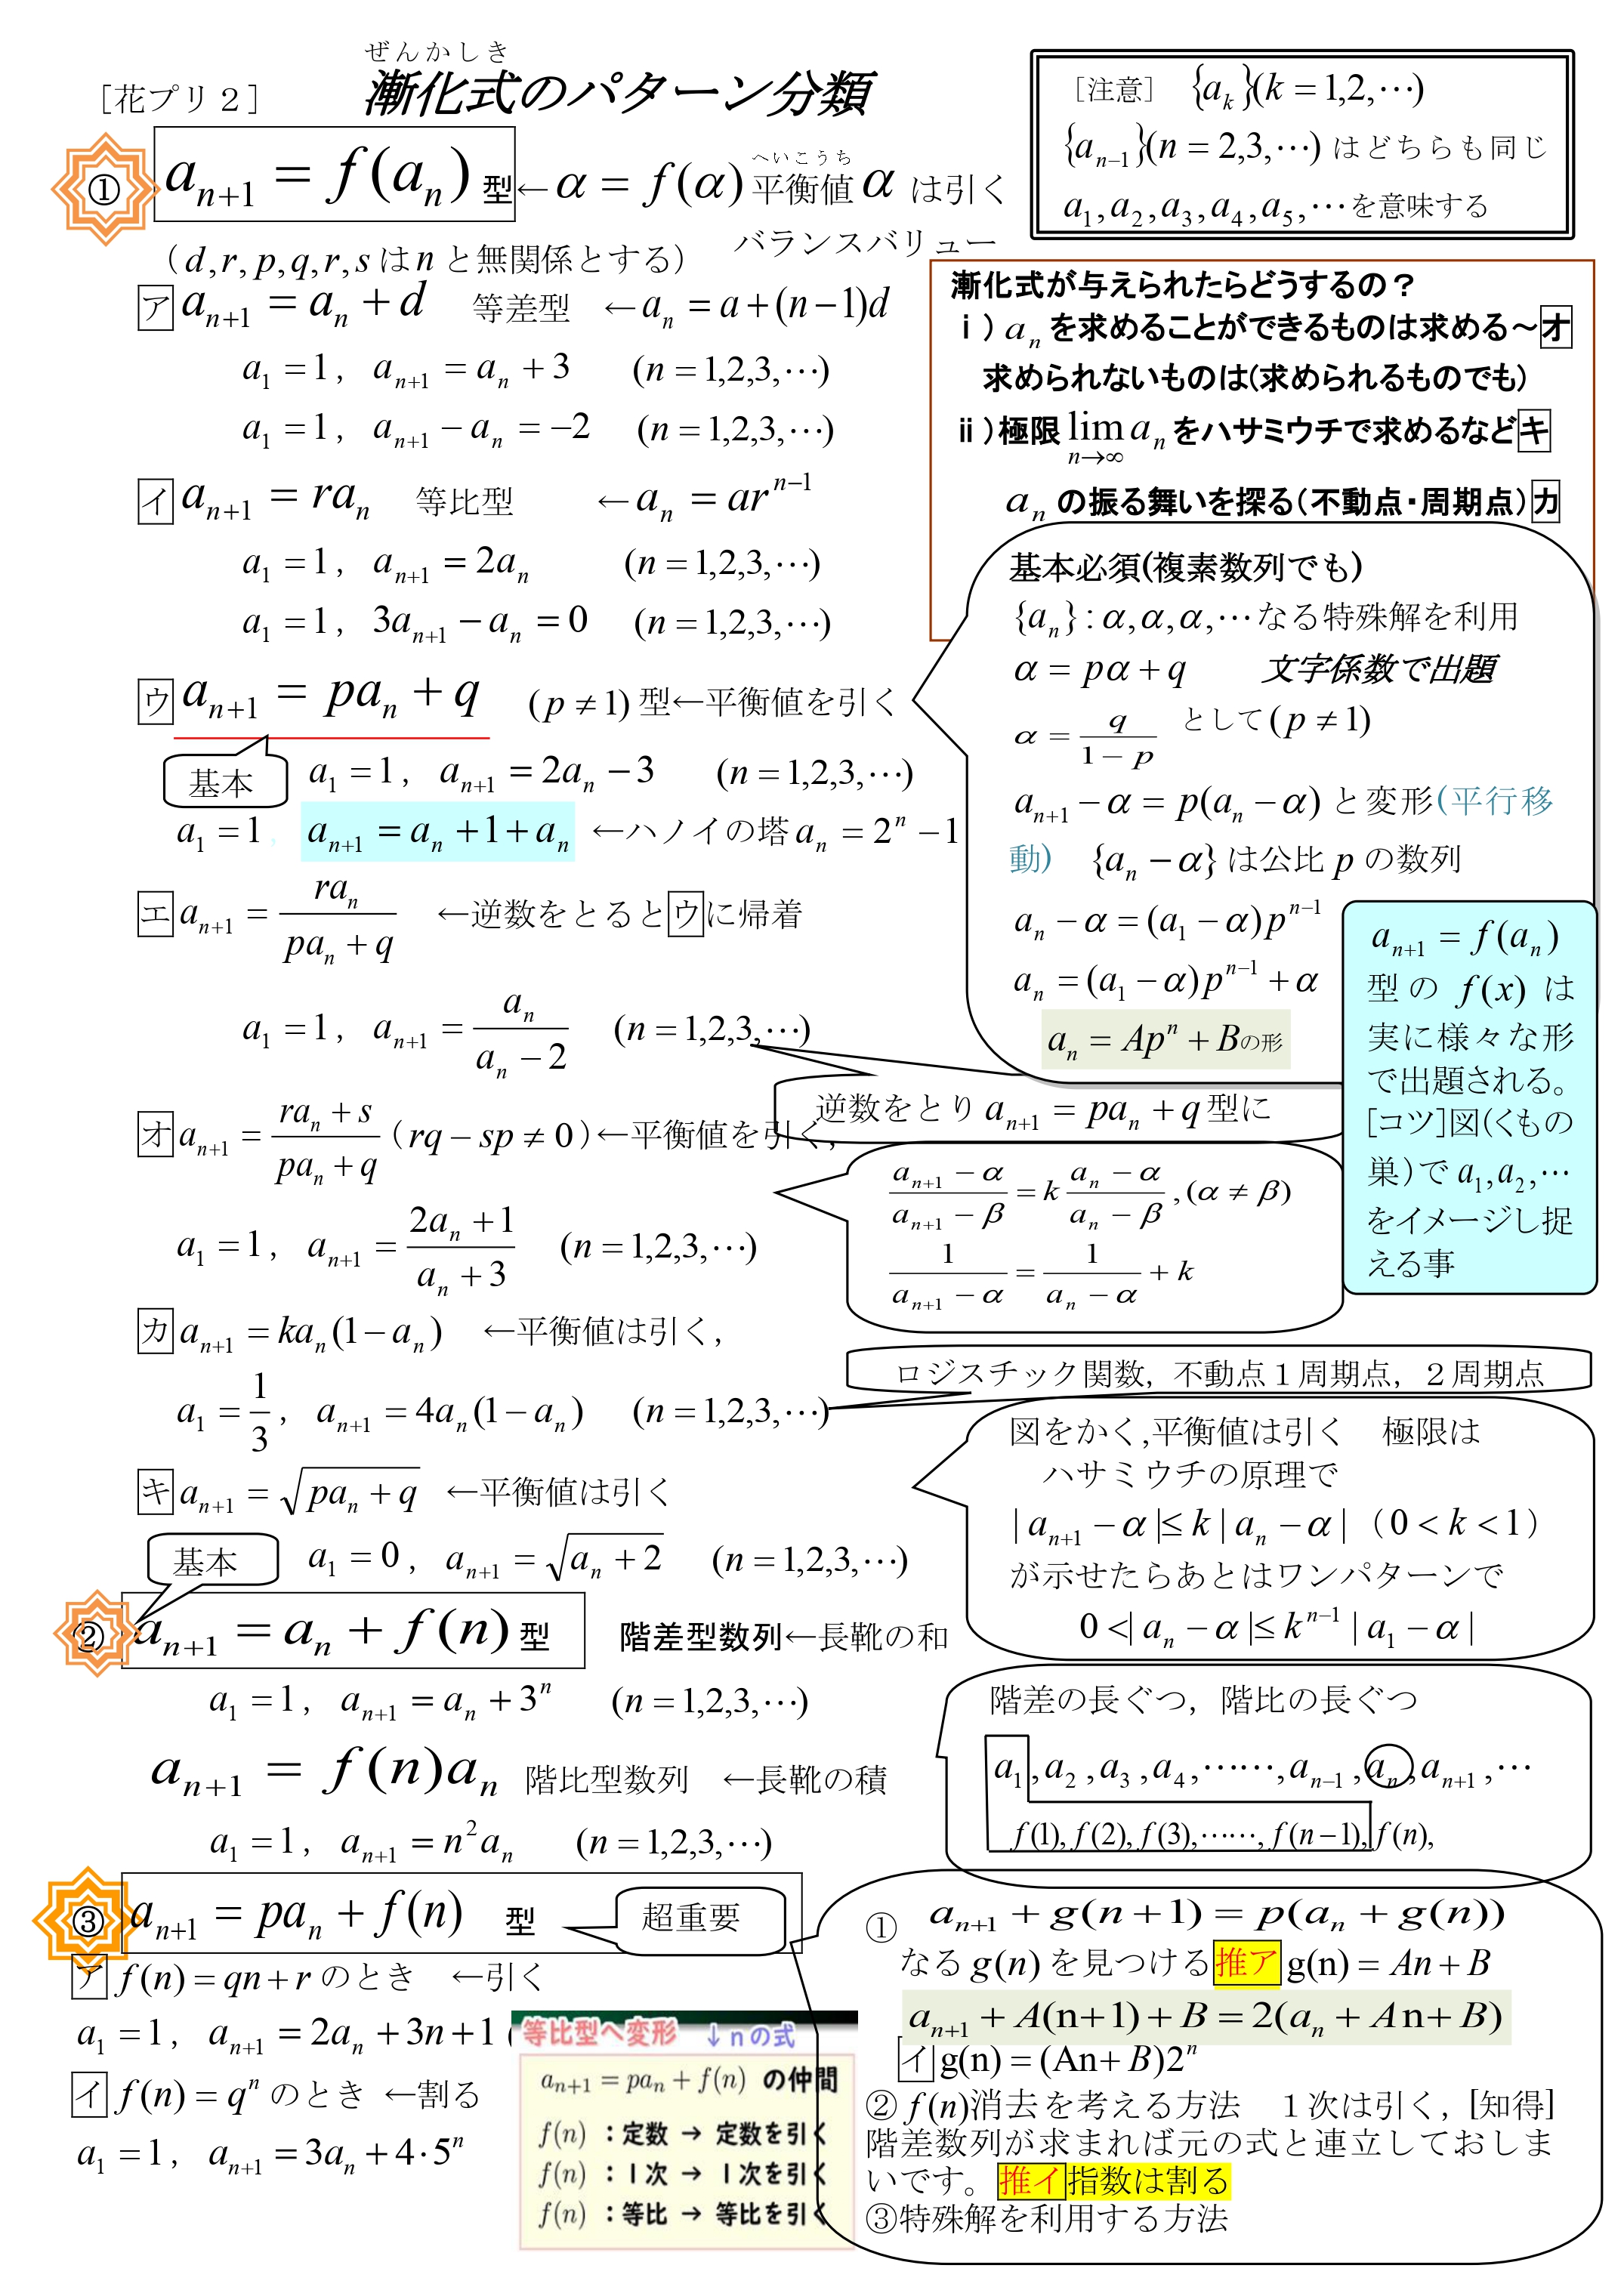 ぜんかしき
［花プリ２］ 漸化式のパターン分類
［注意］ {a_k}(k = 1,2,⋯)
{a_{n−1}}(n = 2,3,⋯) はどちらも同じ
a_1, a_2, a_3, a_4, a_5, ⋯を意味する
へいこうち
① a_{n+1} = f(a_n) 型←α = f(α) 平衡値 α は引く
バランスバリュー
（d,r,p,q,r,s は n と無関係とする）
ア a_{n+1} = a_n + d 等差型 ←a_n = a+(n−1)d
a_1 = 1, a_{n+1} = a_n + 3 (n = 1,2,3,⋯)
a_1 = 1, a_{n+1} − a_n = −2 (n = 1,2,3,⋯)
イ a_{n+1} = ra_n 等比型 ←a_n = ar^{n−1}
a_1 = 1, a_{n+1} = 2a_n (n = 1,2,3,⋯)
a_1 = 1, 3a_{n+1} − a_n = 0 (n = 1,2,3,⋯)
漸化式が与えられたらどうするの？
ⅰ）a_n を求めることができるものは求める～オ
求められないものは(求められるものでも)
ⅱ）極限 lim_{n→∞} a_n をハサミウチで求めるなどキ
a_n の振る舞いを探る（不動点・周期点）カ
ウ a_{n+1} = pa_n + q (p ≠ 1) 型←平衡値を引く
基本 a_1 = 1, a_{n+1} = 2a_n − 3 (n = 1,2,3,⋯)
a_1 = 1, a_{n+1} = a_n + 1 + a_n ←ハノイの塔 a_n = 2^n − 1
基本必須(複素数列でも)
{a_n} : α,α,α,⋯なる特殊解を利用
α = pα + q 文字係数で出題
α = q/(1 − p) として(p ≠ 1)
a_{n+1} − α = p(a_n − α) と変形(平行移
動) {a_n − α} は公比 p の数列
a_n − α = (a_1 − α)p^{n−1}
a_n = (a_1 − α)p^{n−1} + α
a_n = Ap^n + Bの形
a_{n+1} = f(a_n)
型の f(x) は
実に様々な形
で出題される。
［コツ］図(くもの
巣）で a_1, a_2, ⋯
をイメージし捉
える事
エ a_{n+1} = ra_n/(pa_n + q) ←逆数をとるとウに帰着
a_1 = 1, a_{n+1} = a_n/(a_n − 2) (n = 1,2,3,⋯)
逆数をとり a_{n+1} = pa_n + q 型に
オ a_{n+1} = (ra_n + s)/(pa_n + q) (rq − sp ≠ 0)←平衡値を引く,
a_1 = 1, a_{n+1} = (2a_n + 1)/(a_n + 3) (n = 1,2,3,⋯)
(a_{n+1} − α)/(a_{n+1} − β) = k (a_n − α)/(a_n − β), (α ≠ β)
1/(a_{n+1} − α) = 1/(a_n − α) + k
カ a_{n+1} = ka_n(1 − a_n) ←平衡値は引く，
a_1 = 1/3, a_{n+1} = 4a_n(1 − a_n) (n = 1,2,3,⋯)
ロジスチック関数，不動点１周期点，２周期点
キ a_{n+1} = √(pa_n + q) ←平衡値は引く
基本 a_1 = 0, a_{n+1} = √(a_n + 2) (n = 1,2,3,⋯)
図をかく,平衡値は引く 極限は
ハサミウチの原理で
| a_{n+1} − α |≤ k | a_n − α |（0 < k < 1）
が示せたらあとはワンパターンで
0 <| a_n − α |≤ k^{n−1} | a_1 − α |
② a_{n+1} = a_n + f(n) 型 階差型数列←長靴の和
a_1 = 1, a_{n+1} = a_n + 3^n (n = 1,2,3,⋯)
a_{n+1} = f(n)a_n 階比型数列 ←長靴の積
a_1 = 1, a_{n+1} = n^2 a_n (n = 1,2,3,⋯)
階差の長ぐつ，階比の長ぐつ
a_1, a_2, a_3, a_4, ⋯⋯, a_{n−1}, a_n, a_{n+1}, ⋯
f(1), f(2), f(3), ⋯⋯, f(n−1), f(n),
③ a_{n+1} = pa_n + f(n) 型 超重要
ア f(n) = qn + r のとき ←引く
a_1 = 1, a_{n+1} = 2a_n + 3n + 1 (
イ f(n) = q^n のとき ←割る
a_1 = 1, a_{n+1} = 3a_n + 4·5^n
等比型へ変形 ↓ｎの式
a_{n+1} = pa_n + f(n) の仲間
f(n) ：定数 → 定数を引く
f(n) ：１次 → １次を引く
f(n) ：等比 → 等比を引く
① a_{n+1} + g(n+1) = p(a_n + g(n))
なる g(n) を見つける推ア g(n) = An + B
a_{n+1} + A(n+1) + B = 2(a_n + An + B)
イ g(n) = (An + B)2^n
② f(n)消去を考える方法 １次は引く，［知得］
階差数列が求まれば元の式と連立しておしま
いです。 推イ指数は割る
③特殊解を利用する方法